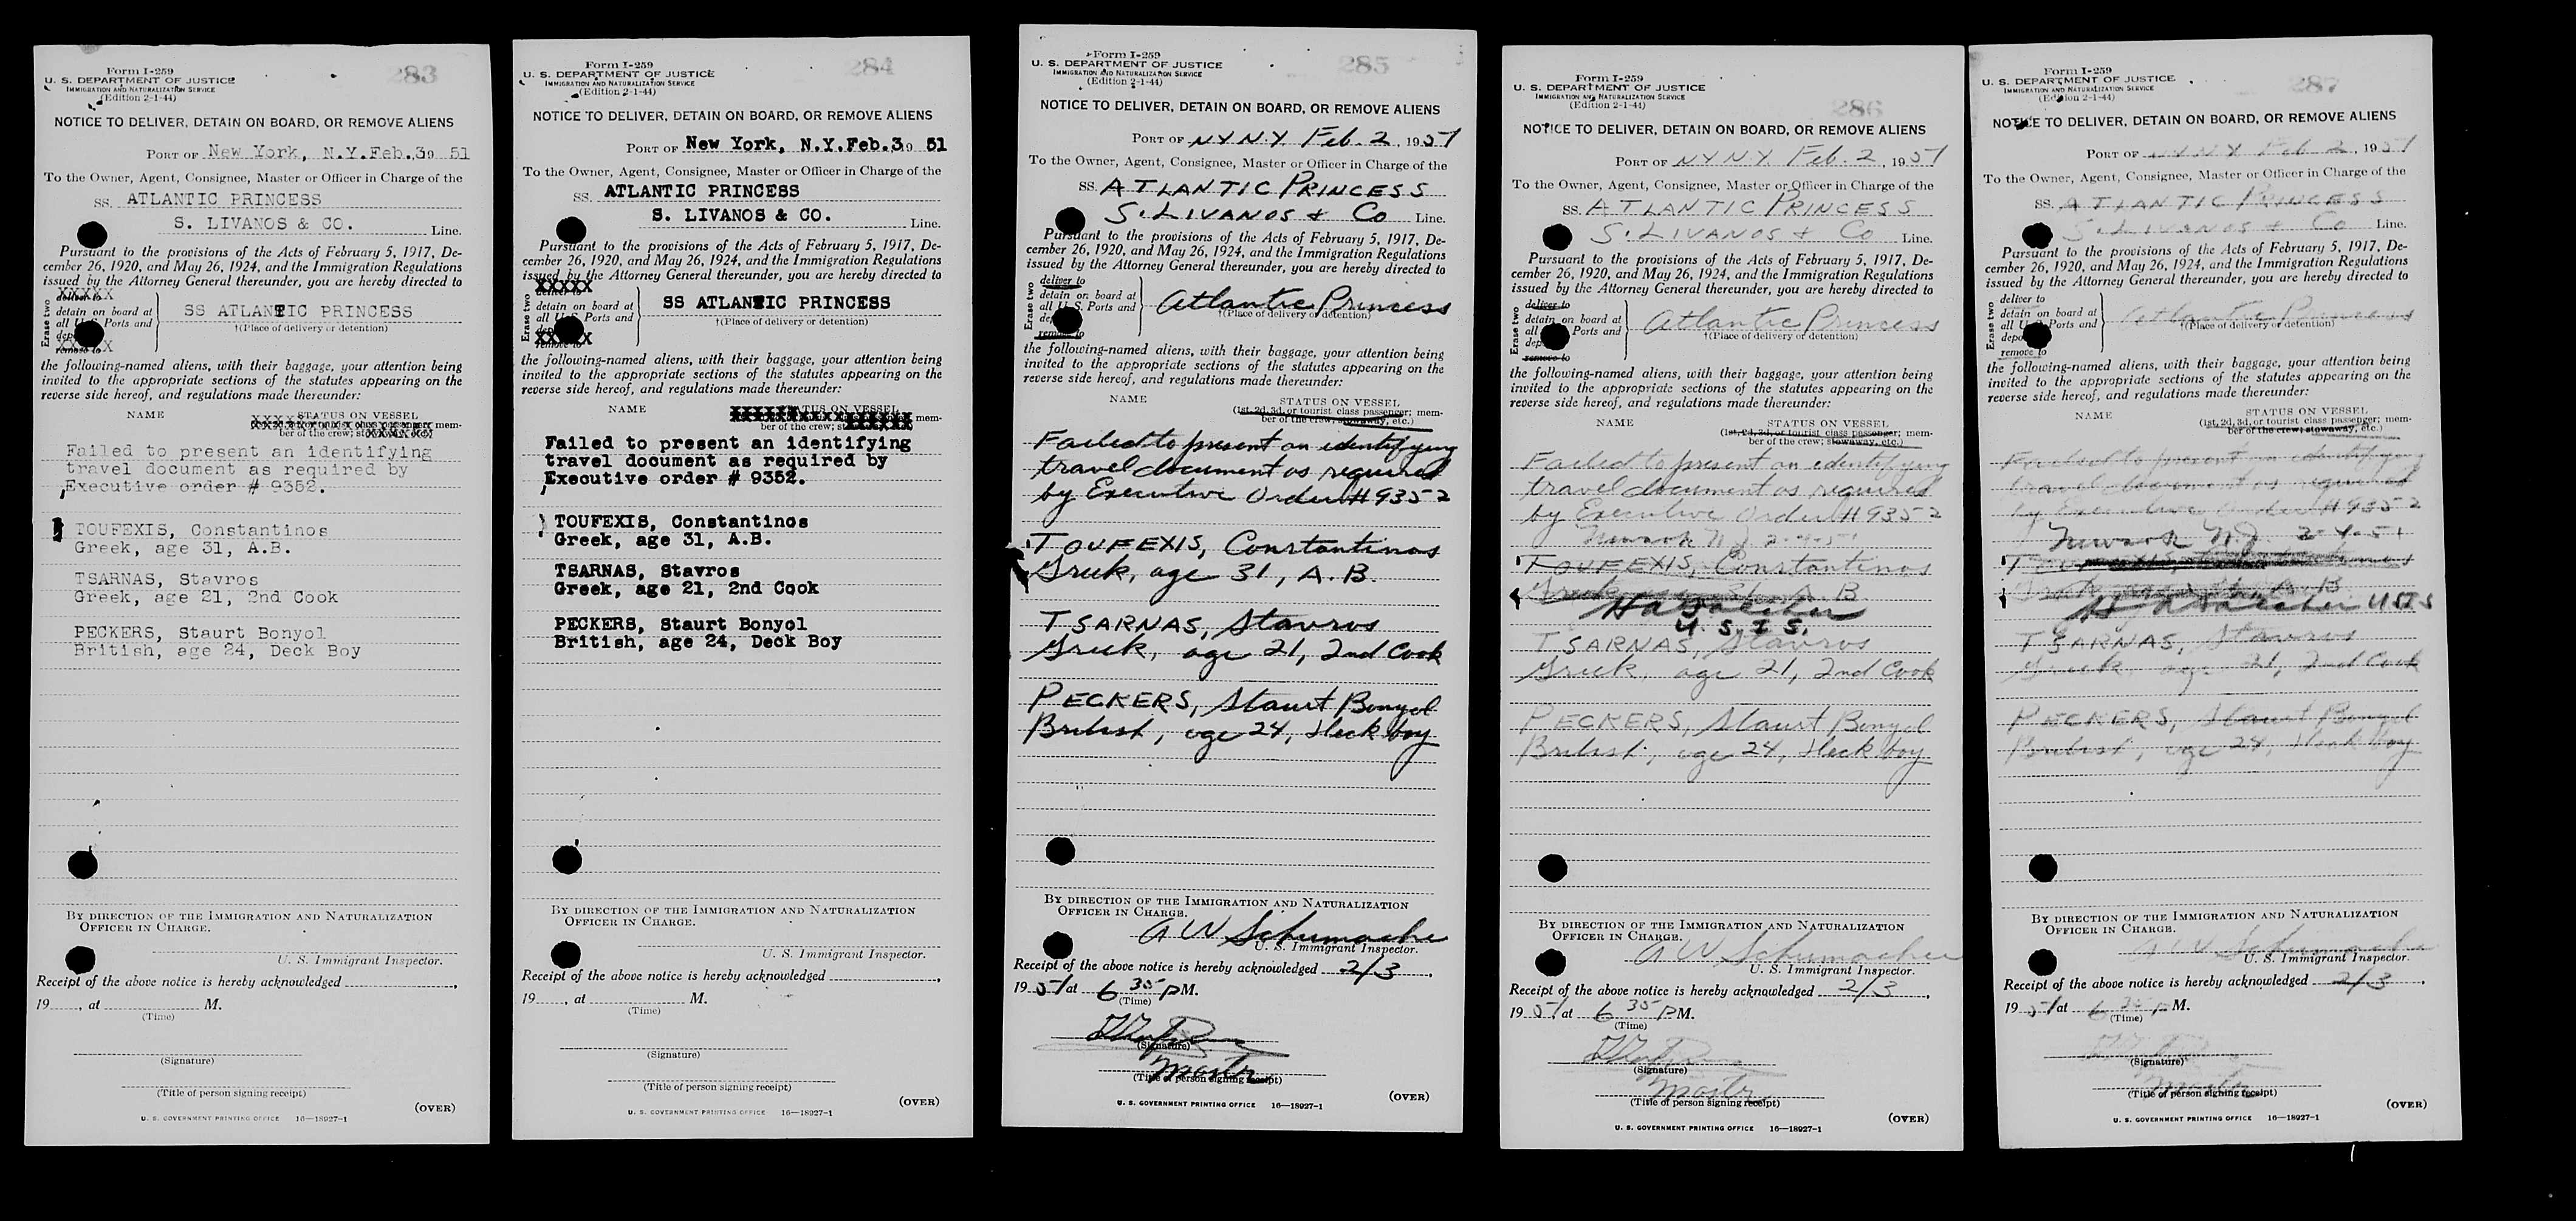 283
Form I-259
U. S. DEPARTMENT OF JUSTICE
IMMIGRATION AND NATURALIZATION SERVICE
(Edition 2-1-44)
NOTICE TO DELIVER, DETAIN ON BOARD, OR REMOVE ALIENS
PORT OF New York, N.Y.Feb.3 19 51
To the Owner, Agent, Consignee, Master or Officer in Charge of the
SS. ATLANTIC PRINCESS
S. LIVANOS & CO. Line.
Pursuant to the provisions of the Acts of February 5, 1917, De-
cember 26, 1920, and May 26, 1924, and the Immigration Regulations
issued by the Attorney General thereunder, you are hereby directed to
Erase two
deliver to
detain on board at
all U.S. Ports and
remove to
SS ATLANTIC PRINCESS
†(Place of delivery or detention)
the following-named aliens, with their baggage, your attention being
invited to the appropriate sections of the statutes appearing on the
reverse side hereof, and regulations made thereunder:
NAME STATUS ON VESSEL
mem-
ber of the crew;
Failed to present an identifying
travel document as required by
Executive order # 9352.
TOUFEXIS, Constantinos
Greek, age 31, A.B.
TSARNAS, Stavros
Greek, age 21, 2nd Cook
PECKERS, Staurt Bonyol
British, age 24, Deck Boy
BY DIRECTION OF THE IMMIGRATION AND NATURALIZATION
OFFICER IN CHARGE.
U. S. Immigrant Inspector.
Receipt of the above notice is hereby acknowledged
19 , at M.
(Time)
(Signature)
(Title of person signing receipt)
(OVER)
U. S. GOVERNMENT PRINTING OFFICE 16—18927-1
284
Form I-259
U. S. DEPARTMENT OF JUSTICE
IMMIGRATION AND NATURALIZATION SERVICE
(Edition 2-1-44)
NOTICE TO DELIVER, DETAIN ON BOARD, OR REMOVE ALIENS
PORT OF New York, N.Y.Feb.3 19 51
To the Owner, Agent, Consignee, Master or Officer in Charge of the
SS. ATLANTIC PRINCESS
S. LIVANOS & CO. Line.
Pursuant to the provisions of the Acts of February 5, 1917, De-
cember 26, 1920, and May 26, 1924, and the Immigration Regulations
issued by the Attorney General thereunder, you are hereby directed to
Erase two
deliver to
detain on board at
all U.S. Ports and
remove to
SS ATLANTIC PRINCESS
†(Place of delivery or detention)
the following-named aliens, with their baggage, your attention being
invited to the appropriate sections of the statutes appearing on the
reverse side hereof, and regulations made thereunder:
NAME STATUS ON VESSEL
mem-
ber of the crew;
Failed to present an identifying
travel document as required by
Executive order # 9352.
TOUFEXIS, Constantinos
Greek, age 31, A.B.
TSARNAS, Stavros
Greek, age 21, 2nd Cook
PECKERS, Staurt Bonyol
British, age 24, Deck Boy
BY DIRECTION OF THE IMMIGRATION AND NATURALIZATION
OFFICER IN CHARGE.
U. S. Immigrant Inspector.
Receipt of the above notice is hereby acknowledged
19 , at M.
(Time)
(Signature)
(Title of person signing receipt)
(OVER)
U. S. GOVERNMENT PRINTING OFFICE 16—18927-1
285
Form I-259
U. S. DEPARTMENT OF JUSTICE
IMMIGRATION AND NATURALIZATION SERVICE
(Edition 2-1-44)
NOTICE TO DELIVER, DETAIN ON BOARD, OR REMOVE ALIENS
PORT OF NY NY. Feb. 2, 1951
To the Owner, Agent, Consignee, Master or Officer in Charge of the
SS. ATLANTIC PRINCESS
S. LIVANOS & Co Line.
Pursuant to the provisions of the Acts of February 5, 1917, De-
cember 26, 1920, and May 26, 1924, and the Immigration Regulations
issued by the Attorney General thereunder, you are hereby directed to
Erase two
deliver to
detain on board at
all U.S. Ports and
remove to
Atlantic Princess
†(Place of delivery or detention)
the following-named aliens, with their baggage, your attention being
invited to the appropriate sections of the statutes appearing on the
reverse side hereof, and regulations made thereunder:
NAME STATUS ON VESSEL
(1st, 2d, 3d, or tourist class passenger; mem-
ber of the crew; stowaway, etc.)
Failed to present an identifying
travel document as required
by Executive Order # 9352
TOUFEXIS, Constantinos
Greek, age 31, A.B.
TSARNAS, Stavros
Greek, age 21, 2nd Cook
PECKERS, Staurt Bonyol
British, age 24, Deck boy
BY DIRECTION OF THE IMMIGRATION AND NATURALIZATION
OFFICER IN CHARGE.
A W Schumacher
U. S. Immigrant Inspector.
Receipt of the above notice is hereby acknowledged 2/3,
1951 at 6 35 PM.
(Time)
(Signature)
Master
(Title of person signing receipt)
(OVER)
U. S. GOVERNMENT PRINTING OFFICE 16—18927-1
286
Form I-259
U. S. DEPARTMENT OF JUSTICE
IMMIGRATION AND NATURALIZATION SERVICE
(Edition 2-1-44)
NOTICE TO DELIVER, DETAIN ON BOARD, OR REMOVE ALIENS
PORT OF NY NY. Feb. 2, 1951
To the Owner, Agent, Consignee, Master or Officer in Charge of the
SS. ATLANTIC PRINCESS
S. LIVANOS & Co Line.
Pursuant to the provisions of the Acts of February 5, 1917, De-
cember 26, 1920, and May 26, 1924, and the Immigration Regulations
issued by the Attorney General thereunder, you are hereby directed to
Erase two
deliver to
detain on board at
all Ports and
remove to
Atlantic Princess
†(Place of delivery or detention)
the following-named aliens, with their baggage, your attention being
invited to the appropriate sections of the statutes appearing on the
reverse side hereof, and regulations made thereunder:
NAME STATUS ON VESSEL
(1st, 2d, 3d, or tourist class passenger; mem-
ber of the crew; stowaway, etc.)
Failed to present an identifying
travel document as required
by Executive Order # 9352
Newark N.J. 2-4-51
TOUFEXIS, Constantinos
Greek A.B
U. S. I. S.
TSARNAS, Stavros
Greek, age 21, 2nd Cook
PECKERS, Staurt Bonyol
British, age 24, Deck boy
BY DIRECTION OF THE IMMIGRATION AND NATURALIZATION
OFFICER IN CHARGE.
A W Schumacher
U. S. Immigrant Inspector.
Receipt of the above notice is hereby acknowledged 2/3,
1951 at 6 35 PM.
(Time)
(Signature)
Master
(Title of person signing receipt)
(OVER)
U. S. GOVERNMENT PRINTING OFFICE 16—18927-1
287
Form I-259
U. S. DEPARTMENT OF JUSTICE
IMMIGRATION AND NATURALIZATION SERVICE
(Edition 2-1-44)
NOTICE TO DELIVER, DETAIN ON BOARD, OR REMOVE ALIENS
PORT OF NY NY Feb 2, 1951
To the Owner, Agent, Consignee, Master or Officer in Charge of the
SS. ATLANTIC PRINCESS
S. LIVANOS & Co Line.
Pursuant to the provisions of the Acts of February 5, 1917, De-
cember 26, 1920, and May 26, 1924, and the Immigration Regulations
issued by the Attorney General thereunder, you are hereby directed to
Erase two
deliver to
detain on board at
all U.S. Ports and
remove to
Atlantic Princess
†(Place of delivery or detention)
the following-named aliens, with their baggage, your attention being
invited to the appropriate sections of the statutes appearing on the
reverse side hereof, and regulations made thereunder:
NAME STATUS ON VESSEL
(1st, 2d, 3d, or tourist class passenger; mem-
ber of the crew; stowaway, etc.)
Failed to present an identifying
travel document as required
by Executive Order # 9352
Newark N.J. 2-4-51
A. B
USIS
TSARNAS, Stavros
Greek age 21, 2nd Cook
PECKERS, Staurt Bonyol
British, age 24, Deck boy
BY DIRECTION OF THE IMMIGRATION AND NATURALIZATION
OFFICER IN CHARGE.
A W Schumacher
U. S. Immigrant Inspector.
Receipt of the above notice is hereby acknowledged 2/3,
1951 at 6 35 P M.
(Time)
(Signature)
Master
(Title of person signing receipt)
(OVER)
U. S. GOVERNMENT PRINTING OFFICE 16—18927-1